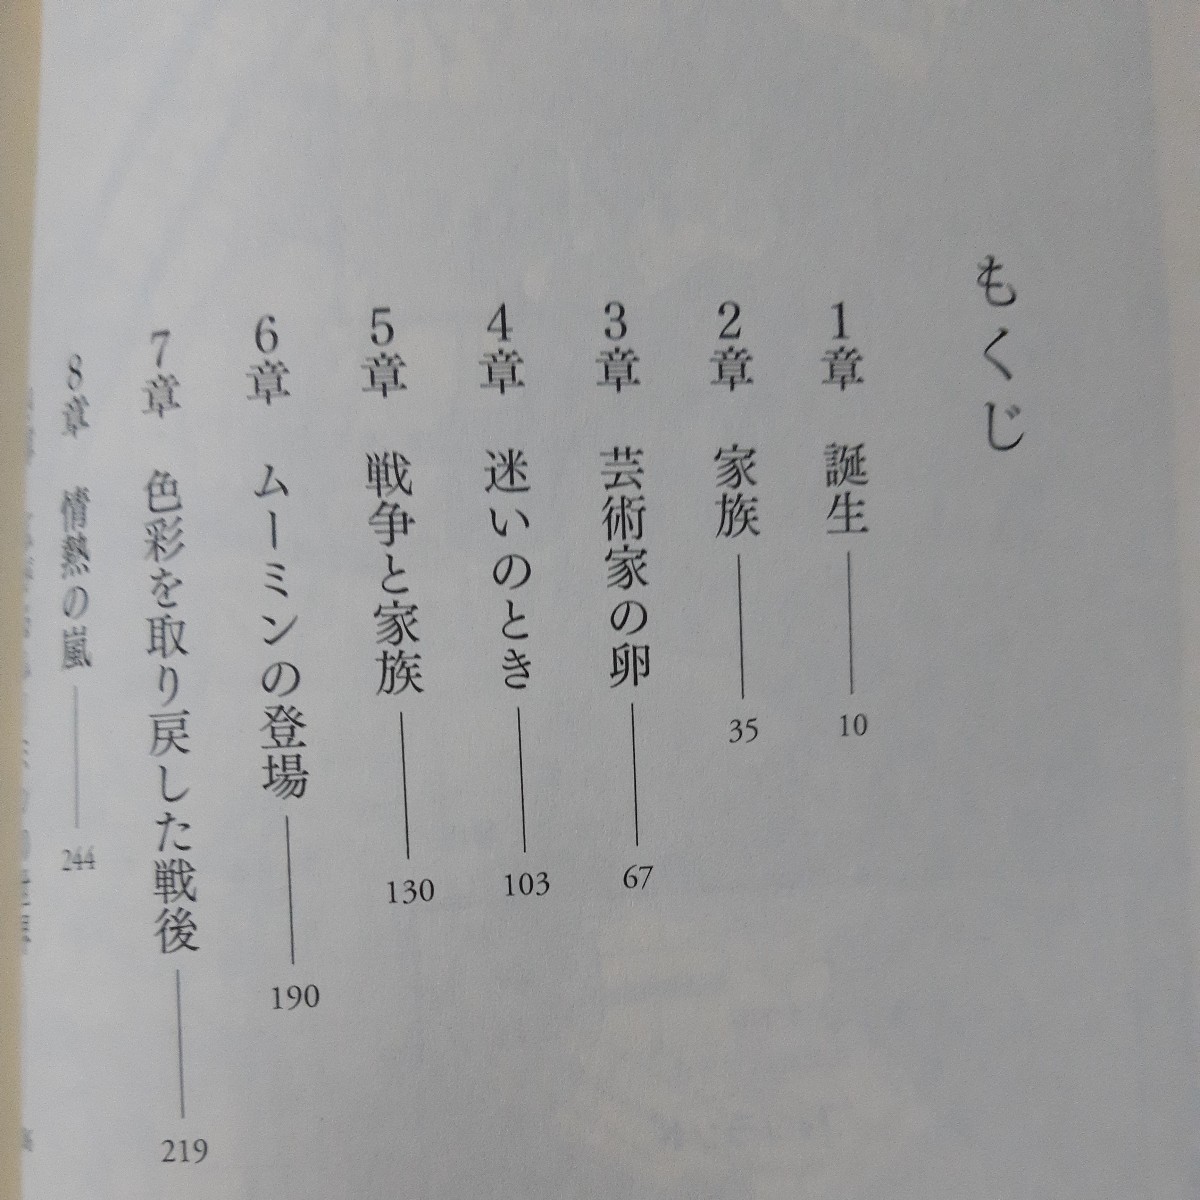 もくじ
1章 誕生 —— 10
2章 家族 —— 35
3章 芸術家の卵 —— 67
4章 迷いのとき —— 103
5章 戦争と家族 —— 130
6章 ムーミンの登場 —— 190
7章 色彩を取り戻した戦後 —— 219
8章 情熱の嵐 —— 244